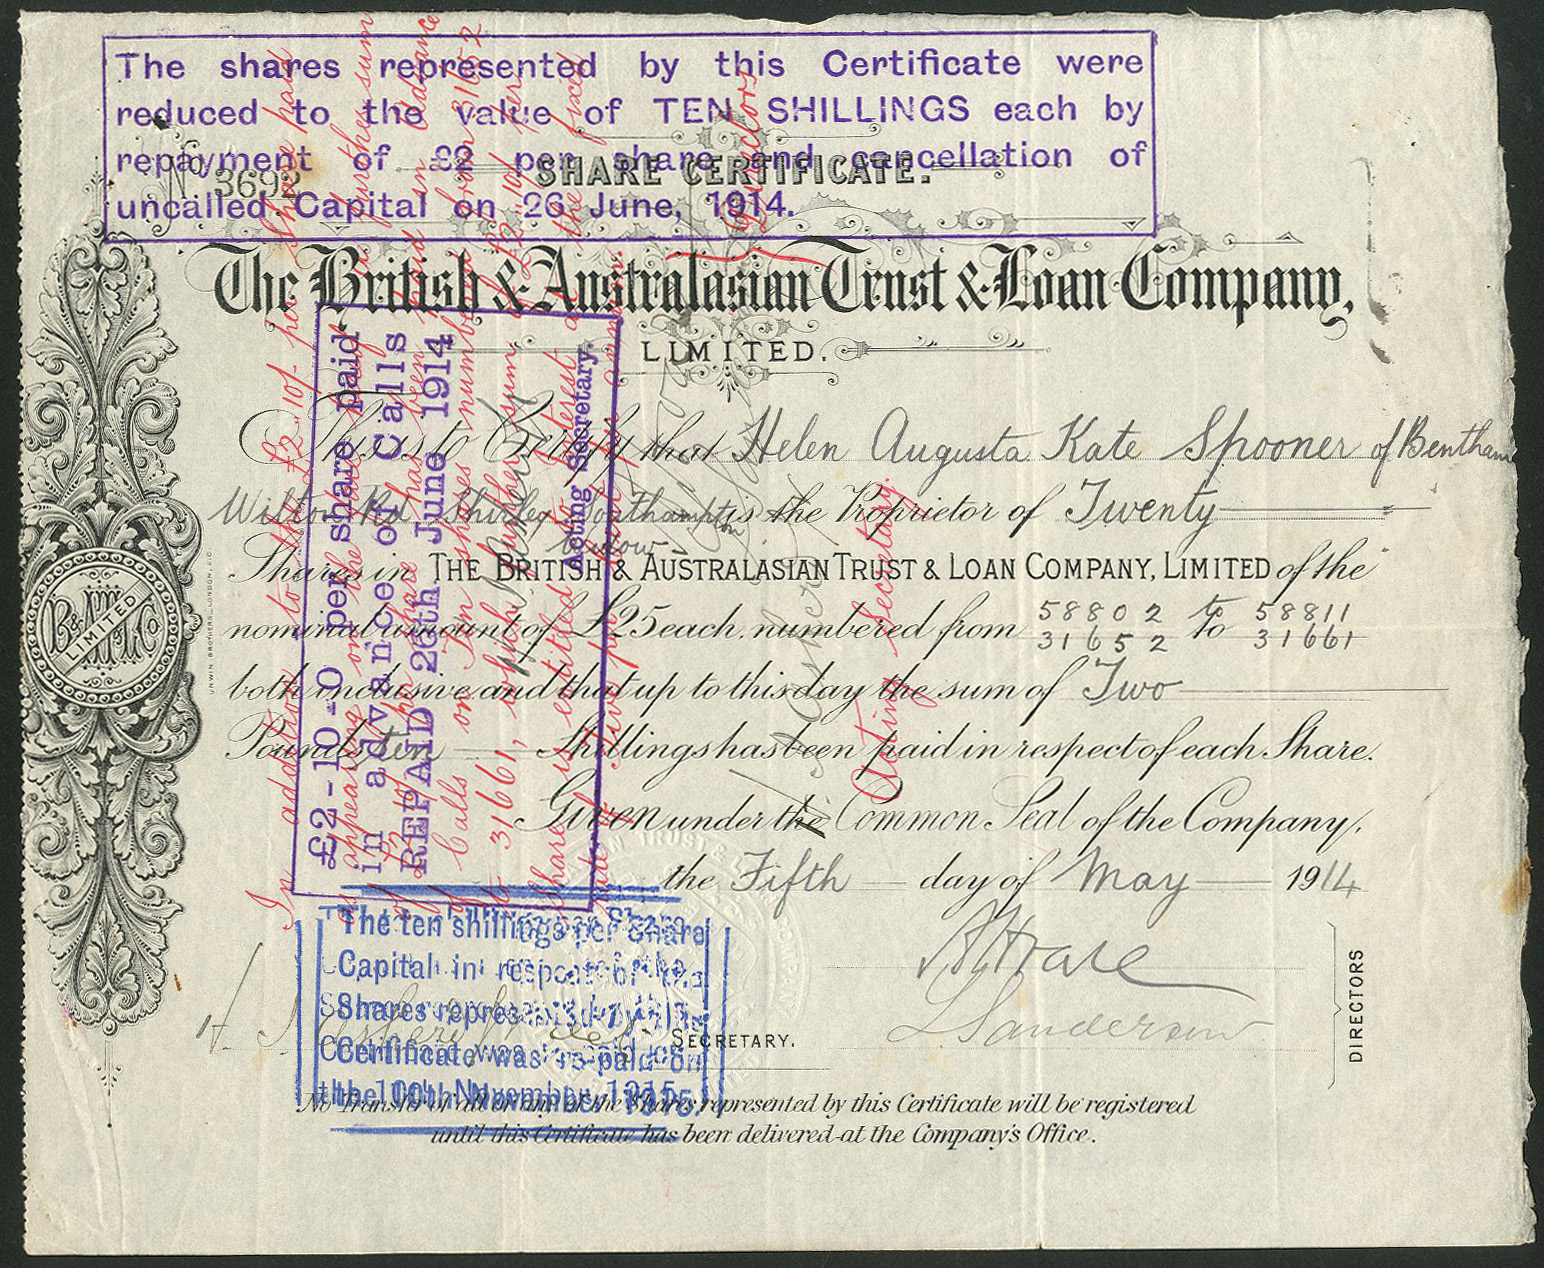 The shares represented by this Certificate were
reduced to the value of TEN SHILLINGS each by
repayment of £2 per share and cancellation of
uncalled Capital on 26 June, 1914.
SHARE CERTIFICATE.
No. 3692
The British & Australasian Trust & Loan Company,
LIMITED.
This is to Certify that Helen Augusta Kate Spooner of Bentham
Wilton Rd. Shirley Southampton is the Proprietor of Twenty
widow
Shares in THE BRITISH & AUSTRALASIAN TRUST & LOAN COMPANY, LIMITED of the
nominal amount of £25 each, numbered from 58802 to 58811
31652 to 31661
both inclusive, and that up to this day the sum of Two
Pounds ten Shillings has been paid in respect of each Share.
Given under the Common Seal of the Company,
the Fifth day of May 1914
L Sanderson
DIRECTORS
SECRETARY.
No Transfer of all or any of the Shares represented by this Certificate will be registered
until this Certificate has been delivered at the Company's Office.
£2-10-0 per share paid
in advance of Calls
REPAID 26th June 1914
Acting Secretary.
In addition to the £2.10/- per Share
appearing on the
Calls on Ten Shares numbered from 31652
to 31661, which further sum of £2.10/- per
Share is entitled to interest at the fixed
Directors
Acting Secretary.
The ten shillings per Share
Capital in respect of the
Shares represented by this
Certificate was re-paid on
the 10th November 1915.
B&ATL Co
LIMITED
UNWIN BROTHERS, LONDON, E.C.